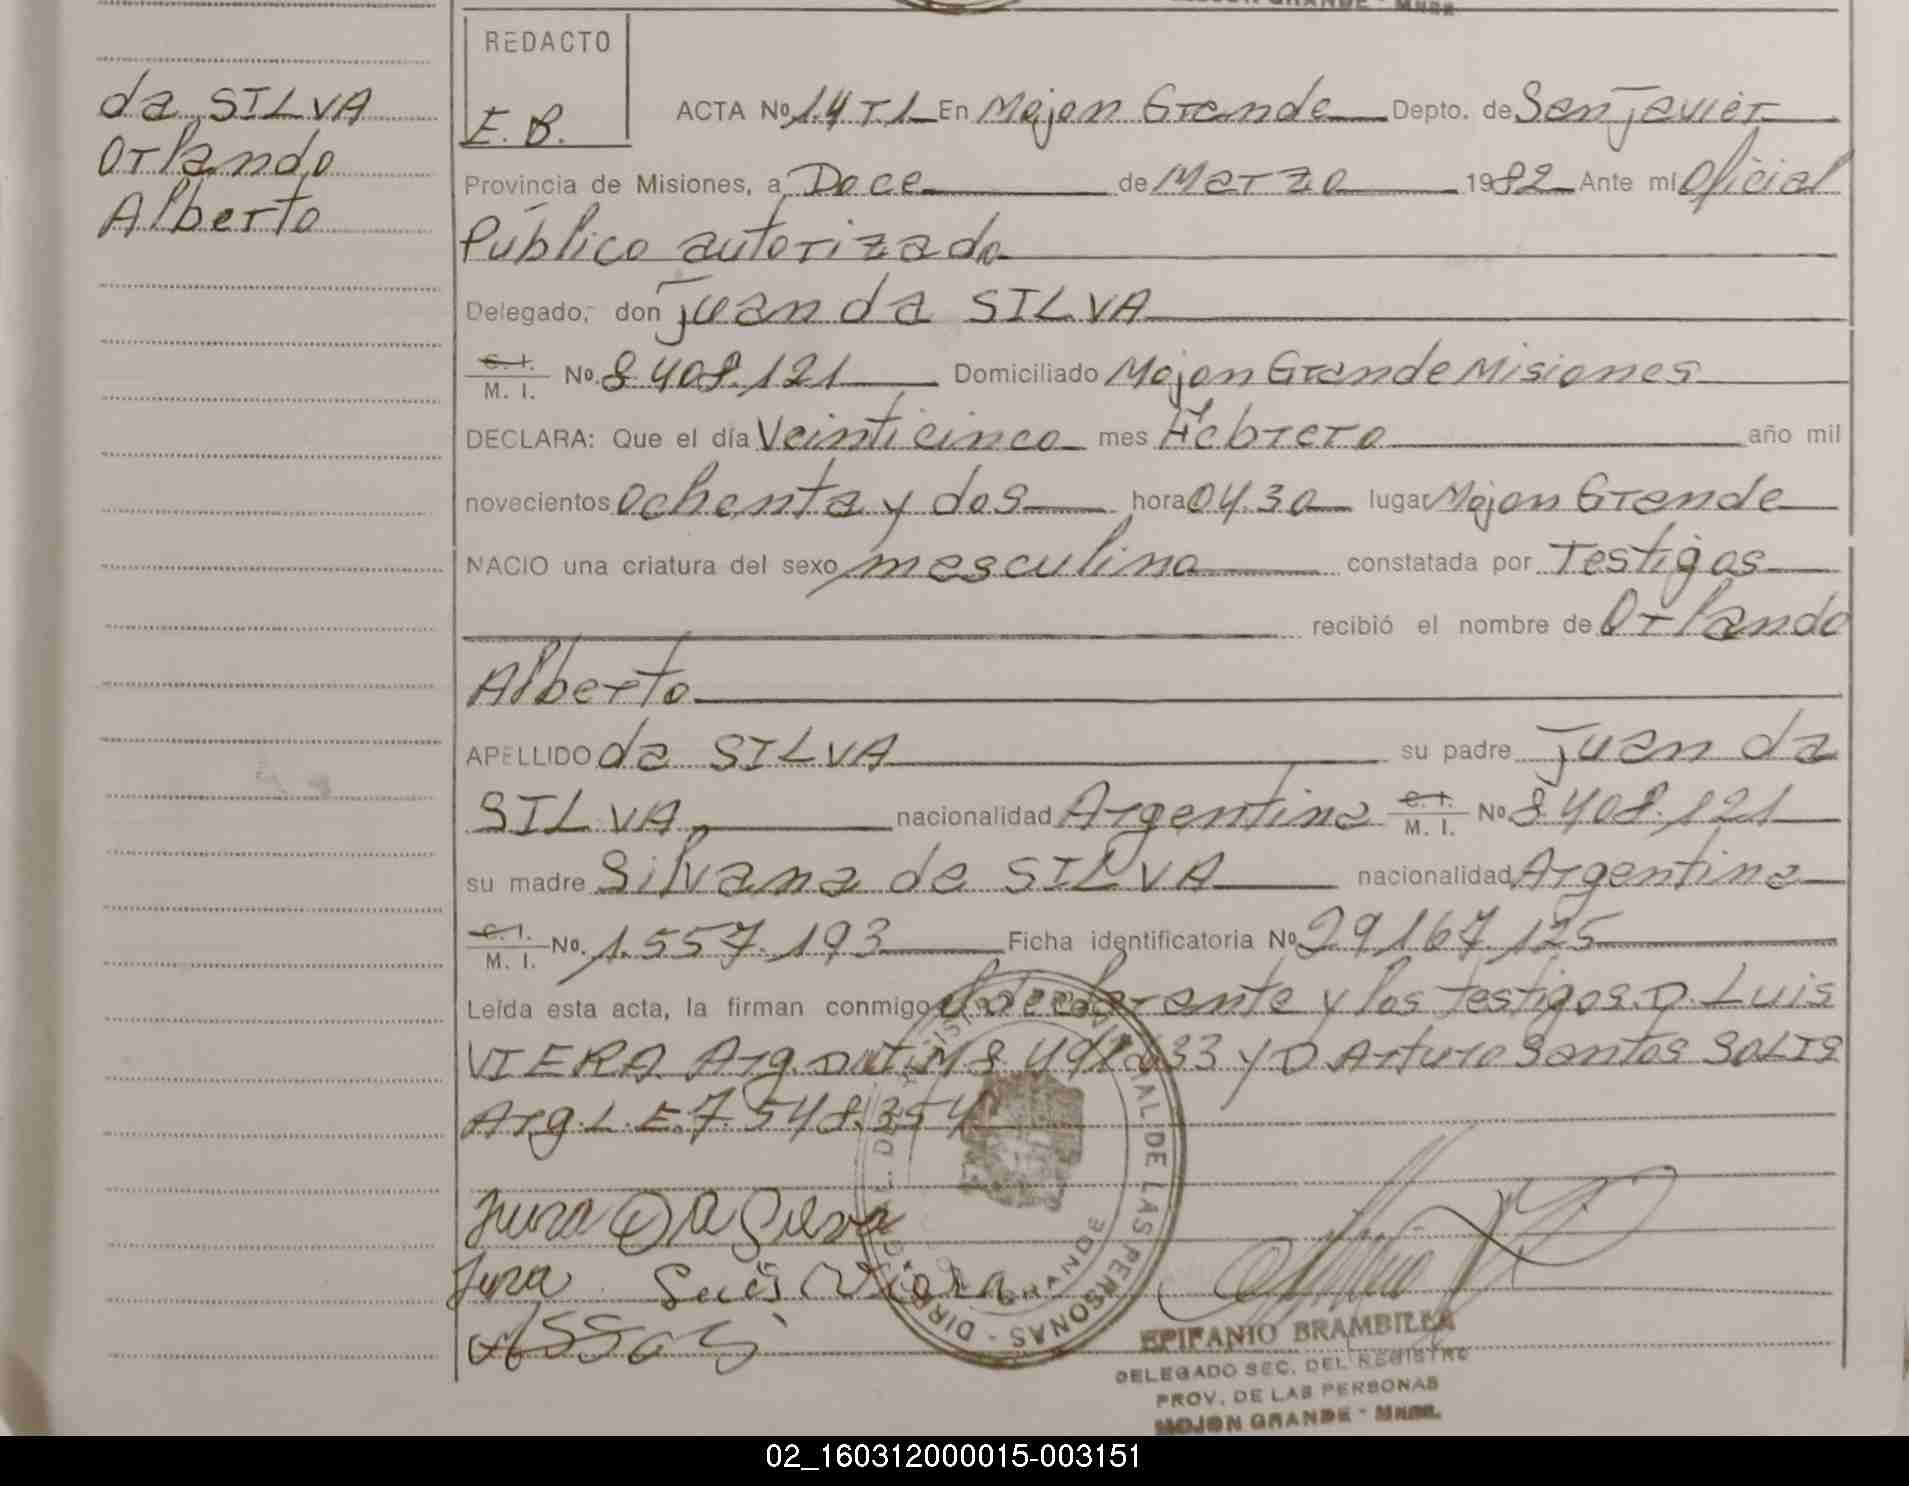 MOJON GRANDE - Mnes.
REDACTO
E. B.
da SILVA
Orlando
Alberto
ACTA Nº 14 T1 En Mojon Grande Depto. de San Javier
Provincia de Misiones, a Doce de Marzo 1982 Ante mi Oficial
Público autorizado
Delegado; don Juan da SILVA
C. I. / M. I. Nº. 8.408.121 Domiciliado Mojon Grande Misiones
DECLARA: Que el día Veinticinco mes Febrero año mil
novecientos ochenta y dos hora 04.30 lugar Mojon Grande
NACIO una criatura del sexo masculino constatada por Testigos
recibió el nombre de Orlando
Alberto
APELLIDO da SILVA su padre Juan da
SILVA nacionalidad Argentina C. I. / M. I. Nº 8.408.121
su madre Silvana de SILVA nacionalidad Argentina
C. I. / M. I. Nº. 1.557.193 Ficha identificatoria Nº 29167.125
Leída esta acta, la firman conmigo el declarante y los testigos D. Luis
VIERA Arg. y D Arturo Santos SOLIS
Arg. L.E. 7.548.354
Juan DA Silva
Luis Viera
DIR. PROVINCIAL DE LAS PERSONAS
GRANDE
EPIFANIO BRAMBILLA
DELEGADO SEC. DEL REGISTRO
PROV. DE LAS PERSONAS
MOJON GRANDE - Mnes.
02_160312000015-003151